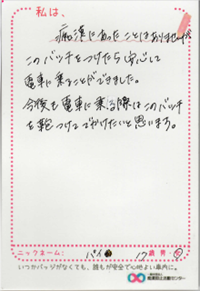 私は、
痴漢にあったことはありませんが
このバッチをつけたら安心して
電車に乗ることができました。
今後も電車に乗る際はこのバッチ
を鞄つけてでかけたいと思います。
ニックネーム: バイ 17歳 男・女
いつかバッジがなくても、誰もが安全で心地よい車内に。
痴漢抑止活動センター